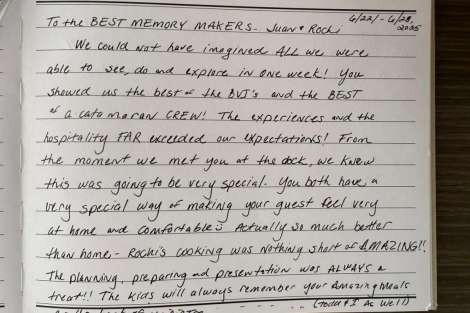 To the BEST MEMORY MAKERS - Juan & Rocki 6/22/ - 6/28, 2025
We could not have imagined ALL we were
able to see, do and explore in one week! You
showed us the best of the BVI's and the BEST
of a catamaran CREW! The experiences and the
hospitality FAR exceeded our expectations! From
the moment we met you at the dock, we knew
this was going to be very special. You both have a
very special way of making your guest feel very
at home and comfortable. Actually so much better
than home - Rochi's cooking was nothing short of AMAZING!!
The planning, preparing and presentation was ALWAYS a
treat!! The kids will always remember your Amazing Meals
(Todd & I As Well)